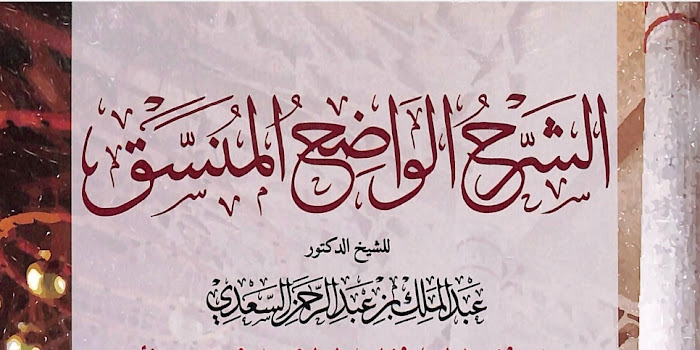 الشَّرْحُ الْوَاضِحُ الْمُنَسَّقُ
للشيخ الدكتور
عبد الملك بن عبد الرحمن السعدي